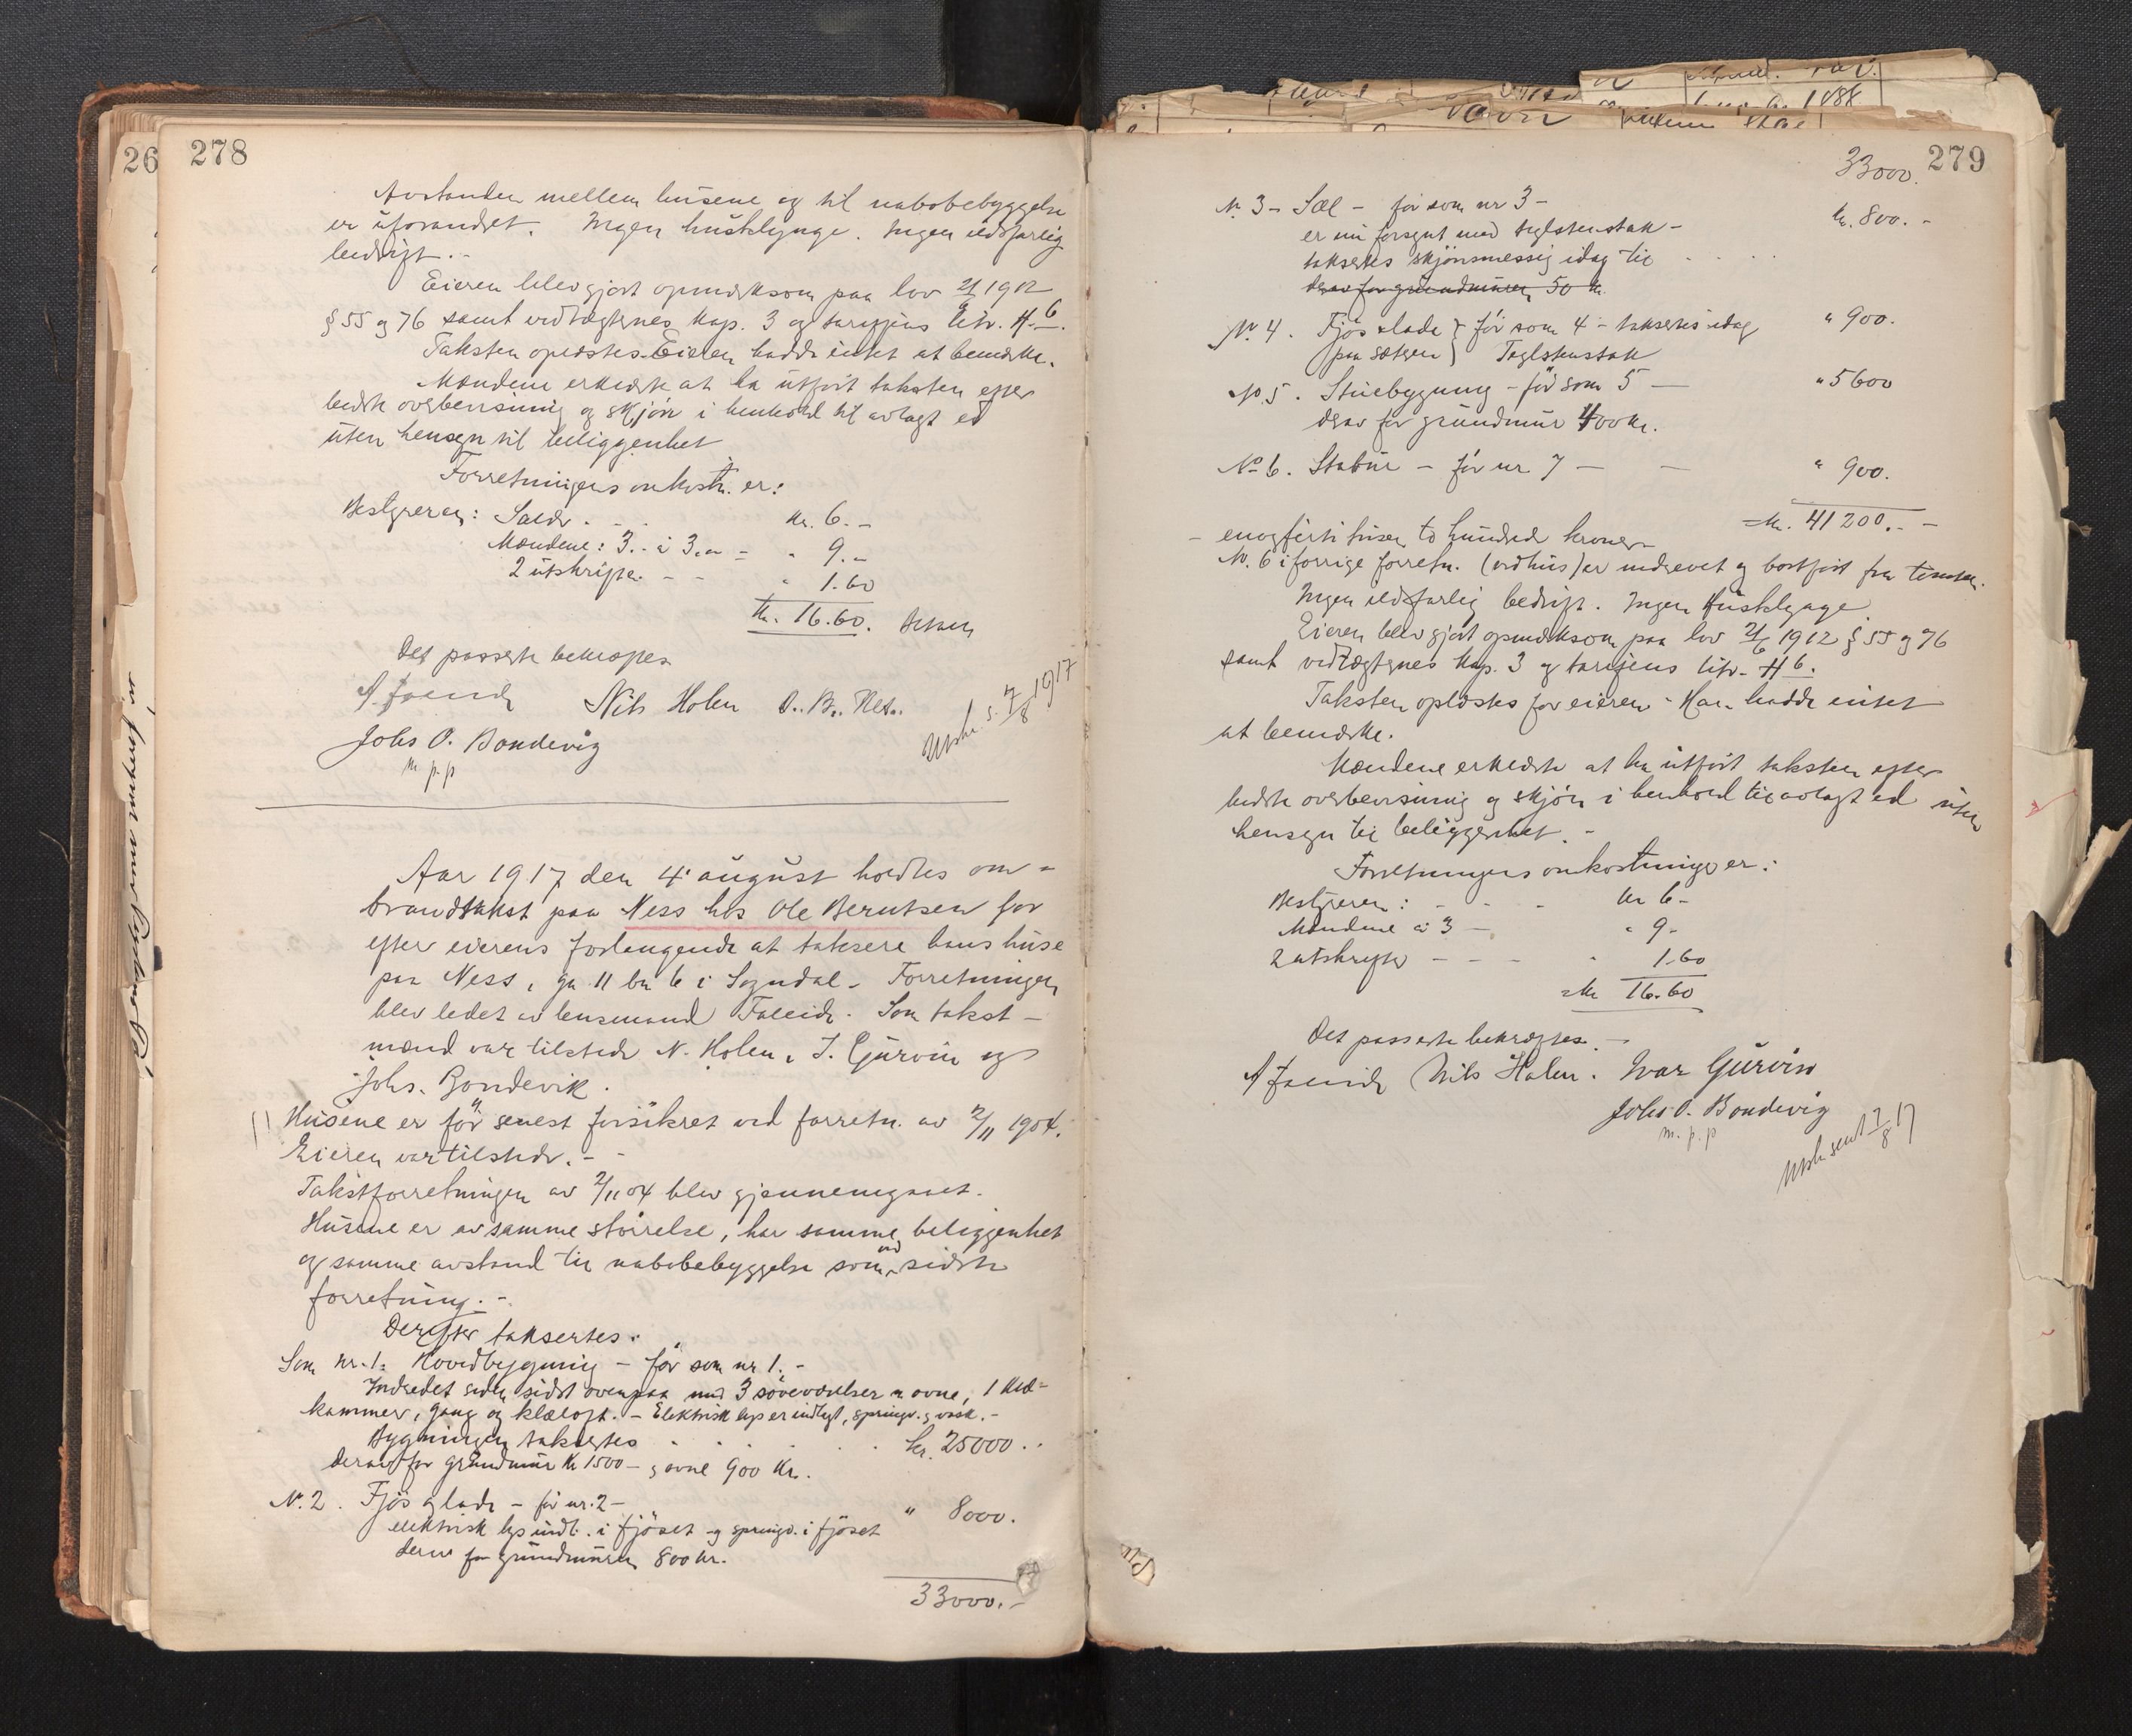 278
Avstanden mellem husene og til nabobebyggelse
er uforandret. Ingen husklynge. Ingen ildsfarlig
bedrift. -
Eieren blev gjort opmerksom paa lov 21/6 1912
§ 55 og 76 samt vedtægternes kap. 3 og tariffens litr. H. 6.
Taksten oplæstes. Eieren hadde intet at bemerke.
Mændene erklærte at ha utført taksten efter
bedste overbevisning og skjøn i henhold til avlagt ed
uten hensyn til beliggenhet
Forretningens omkostn. er:
Bestyreren: Salær . - . Kr. 6. -
Mændene: 3. à 3.00 - " 9. -
2 utskrifter. - - " 1.60
Kr. 16.60.
Det passerte bekræftes
A. Faleide Nils Holen O. B. Nes.
Johs O. Bondevig
m. p. p
Utskr. s. 7/8 1917
Aar 1917 den 4' august holdtes om-
brandtakst paa Ness hos Ole Berntsen for
efter eierens forlangende at taksere hans huse
paa Ness, gn 11 bn 6 i Sogndal - Forretningen
blev ledet av lensmand Faleide. Som takst-
mænd var tilstede N. Holen, I. Gurvin og
Johs. Bondevik.
Husene er før senest forsikret ved forretn. av 2/11 1904.
Eieren var tilstede. - -
Takstforretningen av 2/11 04 blev gjennemgaaet.
Husene er av samme størrelse, har samme beliggenhet
og samme avstand til nabobebyggelse som ved sidste
forretning. -
Derefter taksertes:
Som nr. 1: Hovedbygning - før som nr 1. -
Indredet siden sidst ovenpaa med 3 soveværelser m ovne, 1 klæ-
kammer, gang og klæloft. - Elektrisk lys er indlagt, springv. og vask. -
Bygningen taksertes . . . . . kr. 25000. .
Derav for grundmur kr 1500 - og ovne 900 kr.
No. 2. Fjøs og lade - før nr. 2 -
elektrisk lys indl. i fjøset og springv. i fjøset " 8000.
derav for grundmuren 800 kr.
33000. -
279
33000.
No 3 - Sæl - før som nr 3 -
er nu forsynt med teglstenstak -
taksertes skjønsmessig idag til . . . . kr. 800. -
derav for grundmuren 50 kr.
No. 4. Fjøs & lade } før som 4 - taksertes idag " 900.
(paa sætren) Teglstenstak
No. 5. Stuebygning - før som 5 - " 5600
derav for grundmur 400 kr.
No 6. Stabur - før nr 7 - - " 900.
Kr. 41200. - -
- enogførti tusen to hundrede kroner -
No. 6 i forrige forretn. (vedhus) er nedrevet og bortført fra tomten.
Ingen ildsfarlig bedrift. Ingen husklynge.
Eieren blev gjort opmerksom paa lov 21/6 1912 § 55 og 76
samt vedtægternes kap. 3 og tariffens litr. H 6.
Taksten oplæstes for eieren - Han hadde intet
at bemerke.
Mændene erklærte at ha utført taksten efter
bedste overbevisning og skjøn i henhold til avlagt ed uten
hensyn til beliggenhet. -
Forretningens omkostninger er:
Bestyreren: - - - kr 6 -
Mændene à 3 - " 9 -
2 utskrifter - - - " 1.60
Kr 16.60
Det passerte bekræftes. -
A Faleide Nils Holen. Ivar Gurvin
Johs O. Bondevig
m. p. p
Utskr sent 7/8 17